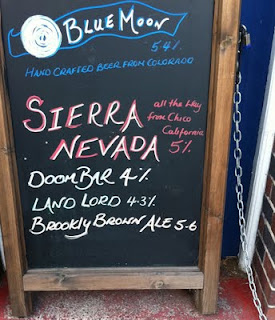 BLUE MOON
5.4%
HAND CRAFTED BEER FROM COLORADO
SIERRA
all the way
from Chico
California
NEVADA 5%
DOOM BAR 4%
LAND LORD 4.3%
BROOKLY BROWN ALE 5-6